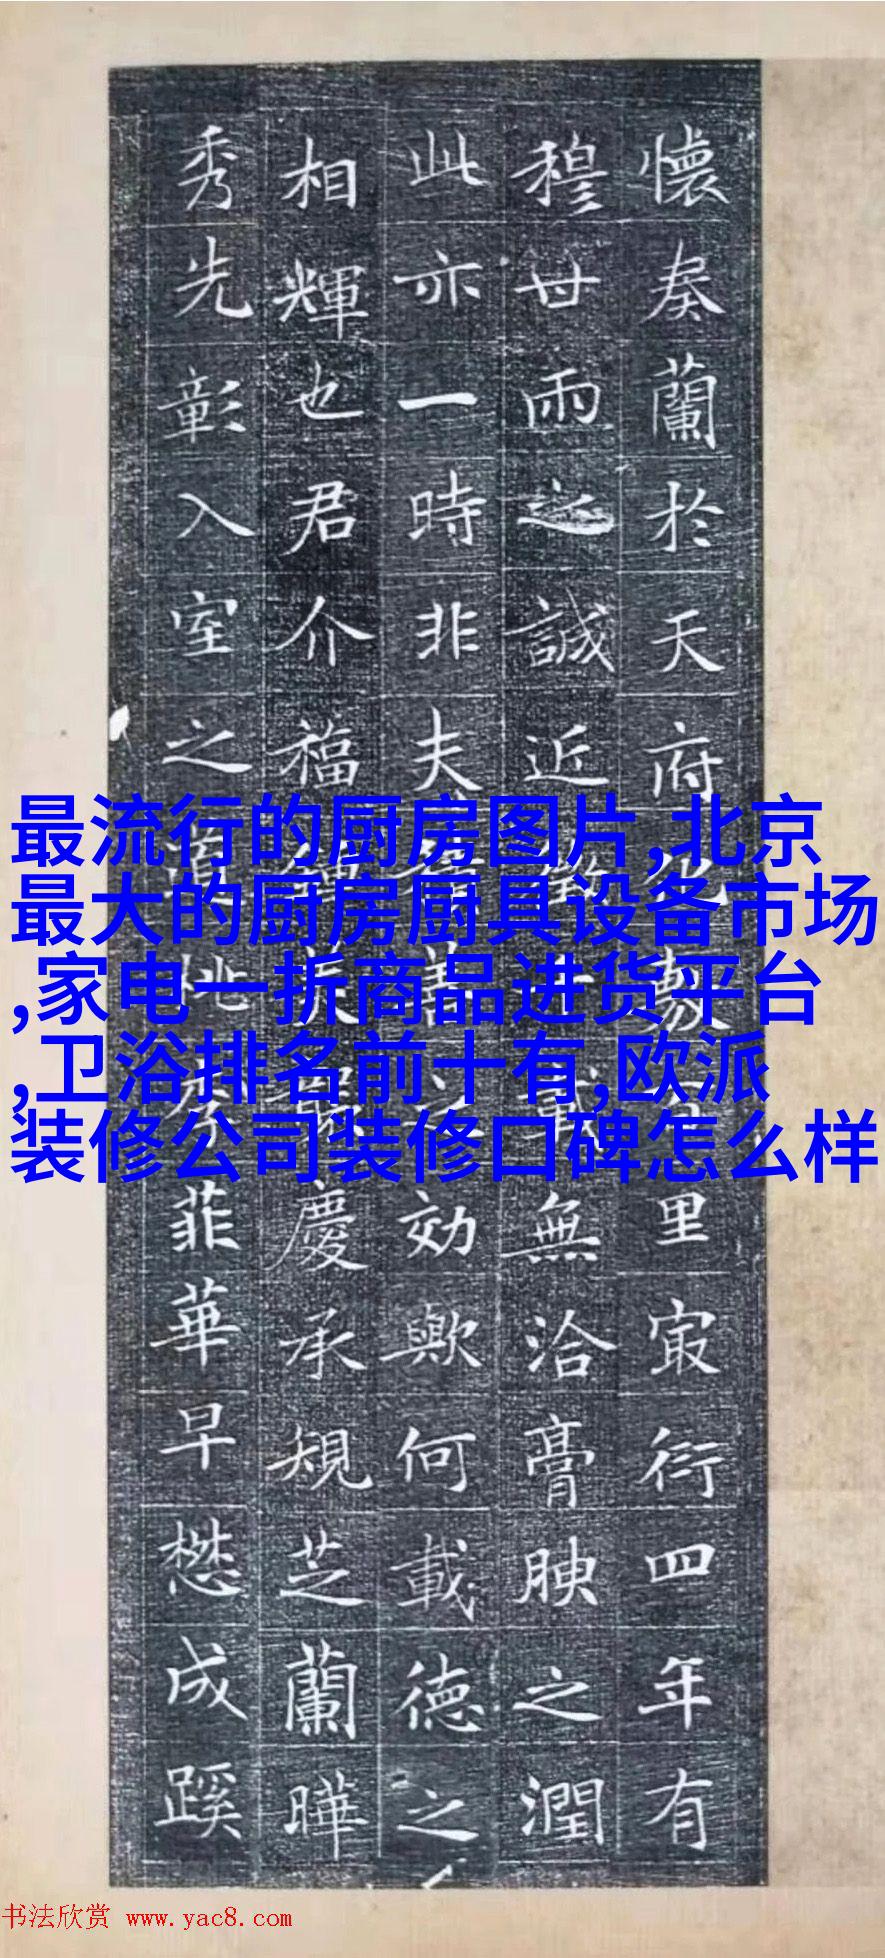 懷奏蘭於天府敷里寂衍四年有
穆世雨之誠近徵載無洽膏腴之潤
此亦一時非夫善効歟何載德之
相輝也君介福鍾慶承規芝蘭曄
秀先彰入室之桃李菲華早懋成蹊
最流行的厨房图片,北京
最大的厨房厨具设备市场
,家电一折商品进货平台
,卫浴排名前十有,欧派
装修公司装修口碑怎么样
书法欣赏 www.yac8.com